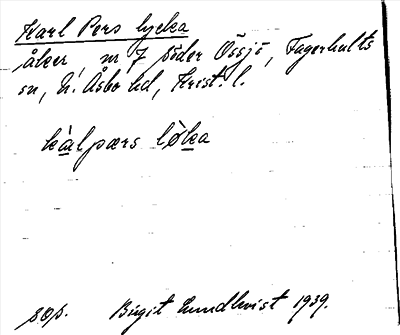 Karl Pers lycka
åker, nr 7 söder Össjö, Fagerhults
sn, N. Åsbo hd, Krist. l.
kàlpærs løka
sop. Birgit Lundkvist 1939.